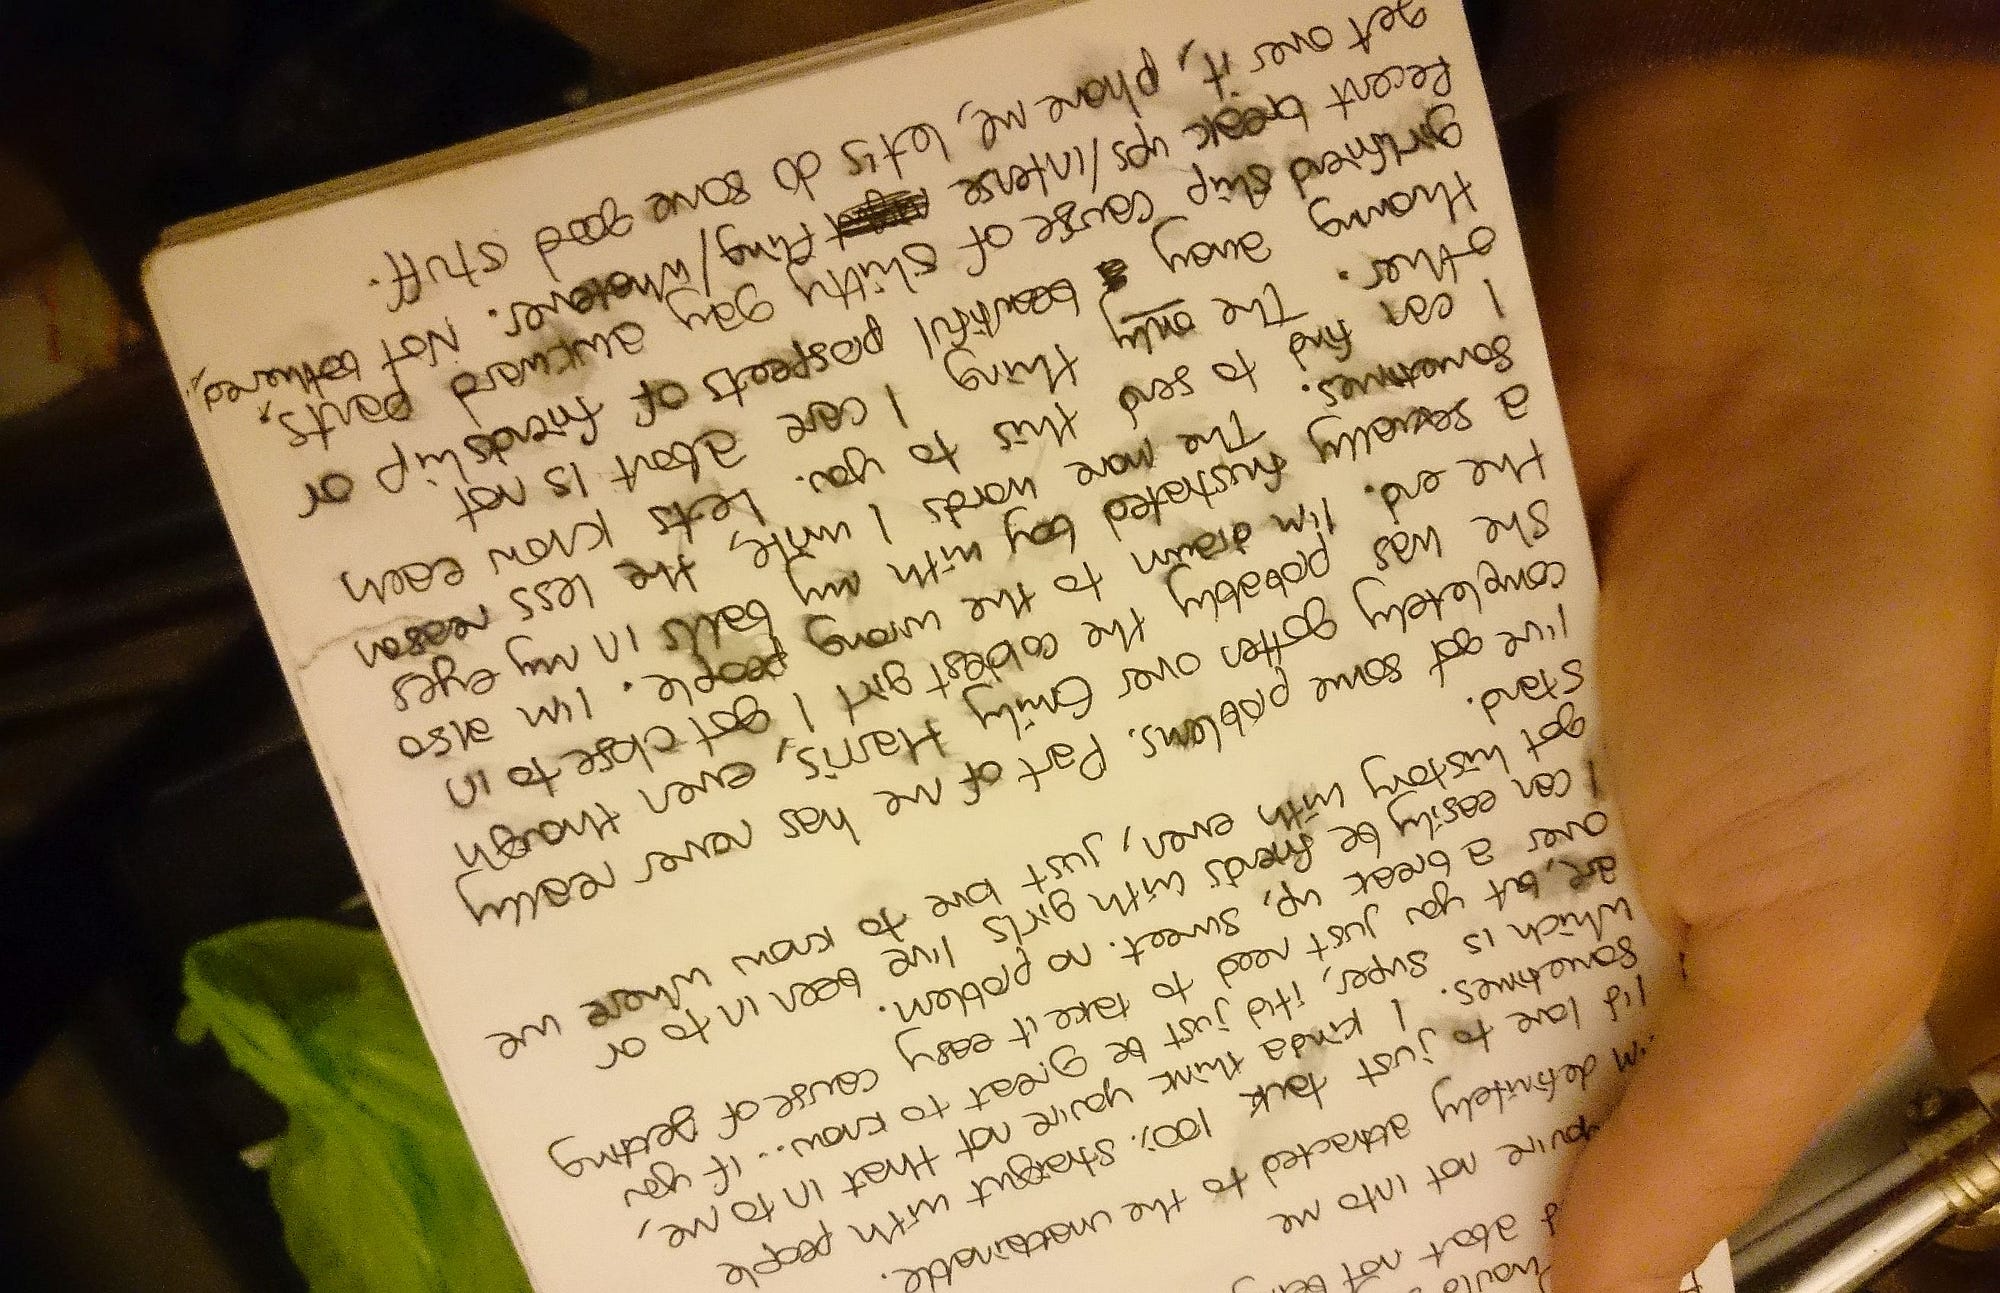 would
about not being
you're not into me
I'm definitely attracted to the unattainable.
I'd love to just talk 100% straight with people
sometimes. I kinda think you're not that in to me,
which is super, it'd just be great to know... if you
are, but you just need to take it easy cause of getting
over a break up, sweet. no problem.
I can easily be friends with girls I've been in to or
got history with even, just love to know where we
stand.
I've got some problems. Part of me has never really
completely gotten over Emily Harris, even though
she was probably the coldest girl I got close to in
the end. I'm drawn to the wrong people. I'm also
a sexually frustrated boy with my balls in my eyes
sometimes. The more words I write, the less reason
I can find to send this to you. Lets know each
other. The only thing I care about is not
throwing away beautiful prospects of friendship or
girlfriend ship cause of shitty gay awkward pants,
recent break ups/intense fling/whatever. Not bothered,
get over it, phone me, let's do some good stuff.